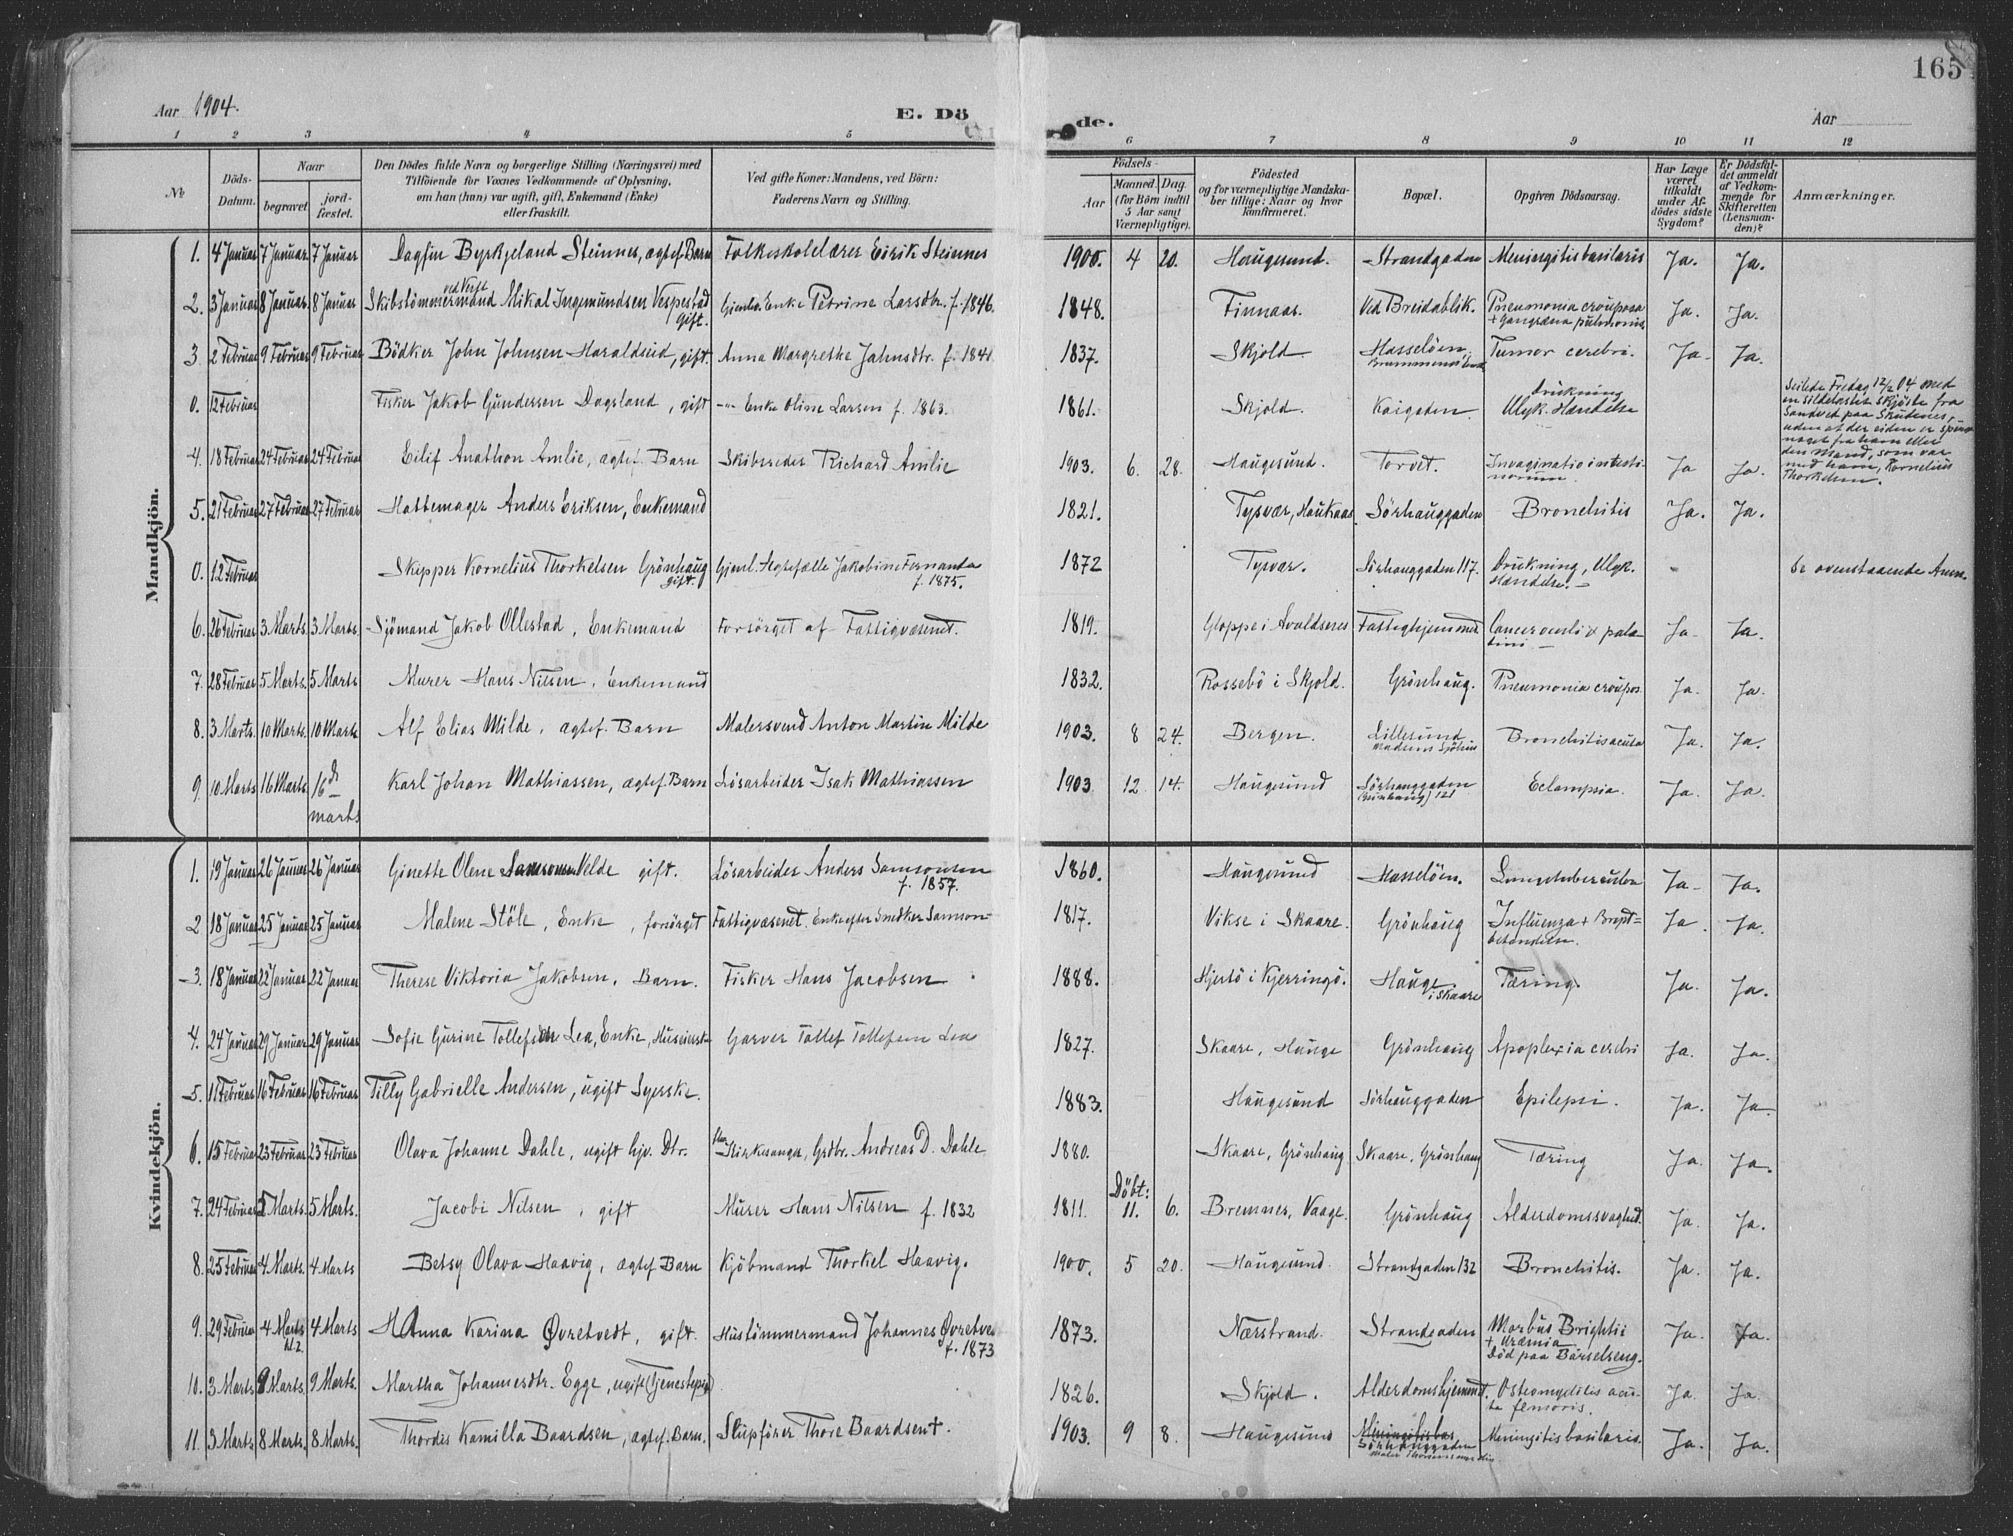 165
Aar 1904. E. Dö de. Aar
1 2 3 4 5 6 7 8 9 10 11 12
No Döds-Datum. Naar begravet. jordfæstet. Den Dödes fulde Navn og borgerlige Stilling (Næringsvei) med Tilföiende for Voxnes Vedkommende af Oplysning, om han (hun) var ugift, gift, Enkemand (Enke) eller fraskilt. Ved gifte Koner: Mandens, ved Börn: Faderens Navn og Stilling. Födsels- Aar Maaned. Dag. (for Börn indtil 5 Aar samt Værnepligtige). Födested og for værnepligtige Mandskaber tillige: Naar og hvor konfirmeret. Bopæl. Opgiven Dödsaarsag. Har Læge været tilkaldt under Afdödes sidste Sygdom? Er Dödsfaldet anmeldt af Vedkommende for Skifteretten (Lensmanden)? Anmærkninger.
Mandkjön.
1. 4 Januar 7 Januar 7 Januar Dagfin Byrkjeland Steinnes, ægtef. Barn Folkeskolelærer Eirik Steinnes 1900. 4 20. Haugesund. Strandgaden Meningitis basilaris Ja. Ja.
2. 3 Januar 8 Januar 8 Januar Skibstömmermand ved Verft Mikal Ingemundsen Vespestad gift. Gjenlev. Enke Petrine Larsdtr. f. 1846. 1848. Finnaas. Ved Breidablik. Pneumonia crouposa + gangræna pulmonis Ja. Ja.
3 2 Februar 9 Februar 9 Februar Bödker John Johnsen Haraldseid, gift. Anna Margrethe Jahnsdtr. f. 1841 1837. Skjold Hasselöen. Tumor cerebri. Ja. Ja.
0. 12 Februar Fisker Jakob Gundersen Dagsland, gift -"- Enke Oline Larsen f. 1863. 1861. Skjold. Kaigaden drukning Ulyk. Hændelse Seilede Fredag 12/2 04 med en sildelastet Skjöite fra Sandved paa Skudenes, uden at der siden er spurt noget fra ham eller den Mand, som var med ham, Kornelius Thorkelsen.
4. 18 Februar 24 Februar 24 Februar Eilif Anathon Amlie, ægtef. Barn Skibsreder Richard Amlie 1903. 6. 28. Haugesund. Torvet. Invaginatio intestinorum. Ja Ja.
5. 21 Februar 27 Februar 27 Februar Hattemager Anders Eriksen, Enkemand 1821. Tysvær, Haukaas. Sörhauggaden Bronchitis Ja. Ja.
0. 12 Februar Skipper Kornelius Thorkelsen Grönhaug gift. Gjenl. Ægtefælle Jakobine Fernanda f. 1875. 1872 Tysvær. Sörhauggaden 117. Drukning, Ulyk. Hændelse. - Se ovenstaaende Anm.
6. 26 Februar 3 Marts. 3 Marts. Sjömand Jakob Ollestad, Enkemand Forsörget af Fattigvæsenet. 1819. Gloppe i Avaldsnes Fattighjemmet. Cancer Ja. Ja.
7. 28 Februar 5 Marts. 5 Marts Murer Hans Nilsen, Enkemand 1832. Rossebö i Skjold. Grönhaug. Pneumonia croupos. Ja. Ja.
8. 3 Marts. 10 Marts. 10 Marts Alf Elias Milde, ægtef. Barn Malersvend Anton Martin Milde 1903. 8 24. Bergen. Lillesund Bronchitis acuta Ja. Ja.
9. 10 Marts 16 Marts. 16 d marts Karl Johan Mathiassen, ægtef. Barn Lösarbeider Isak Mathiassen 1903 12. 14. Haugesund Sörhauggaden (Grönhaug) 121 Eclampsia. Ja. Ja.
Kvindekjön.
1. 19 Januar 26 Januar 26 Januar Ginette Olene Samsonsen Velde gift. Lösarbeider Anders Samsonsen f. 1857. 1860. Haugesund Hasselöen. Lungetuberculose Ja. Ja.
2 18 Januar 25 Januar 25 Januar Malene Stöle, Enke, forsörget Fattigvæsenet. Enke efter Snedker Samson- 1817. Vikse i Skaare. Grönhaug Influenza + Brystbetændelse. Ja. Ja.
3. 18 Januar 22 Januar 22 Januar Therese Viktoria Jakobsen, Barn. Fisker Hans Jacobsen 1888. Hjertö i Kjerringö. Hauge i Skaare Tæring. Ja. Ja.
4. 24 Januar 29 Januar 29 Januar Sofie Gurine Tollefsen Lea, Enke, Garver Tollef Tollefsen Lea 1827. Skaare, Hauge Grönhaug Apoplexia cerebri Ja. Ja.
5. 11 Februar 16 Februar 16 Februar Tilly Gabrielle Andersen, ugift Syerske. 1883. Haugesund Sörhauggaden Epilepsi. Ja. Ja.
6. 15 Februar 23 Februar 23 Februar Olava Johanne Dahle, ugift hjv. Dtr. Kirkesanger, Grdbr. Andreas D. Dahle 1880. Skaare, Grönhaug Skaare, Grönhaug Tæring Ja. Ja.
7. 24 Februar 5 Marts. 5 Marts. Jacobi Nilsen, gift Murer Hans Nilsen f. 1832 1811. Döbt: 11. 6. Bremnes, Vaage. Grönhaug Alderdomssvaghed. Ja. Ja.
8. 25 Februar 4 Marts. 4 Marts Betsy Olava Haavig, ægtef. Barn Kjöbmand Thorkel Haavig. 1900. 5 20. Haugesund. Strandgaden 132 Bronchitis. Ja. Ja.
9. 29 Februar 4 Marts kl. 2. 4 Marts Hanna Karina Øvretvedt, gift. Hustömmermand Johannes Øvretve f. 1873 1873. Nærstrand. Strandgaden Morbus Brightii + Uræmia Död paa Barselseng. Ja. Ja.
10. 3 Marts. 9 Marts. 9 Marts. Martha Johannesdtr. Egge, ugift (Tjenestepige) 1826. Skjold. Alderdomshjemmet. Osteomyelitis acuta femoris. Ja. Ja.
11. 3 Marts. 8 Marts. 8 Marts. Thordis Kamilla Baardsen, ægtef. Barn. Slupförer Thore Baardsen†. 1903. 9 8. Haugesund Meningitis bas Sörhauggaden Meningitis basilaris. Ja. Ja.